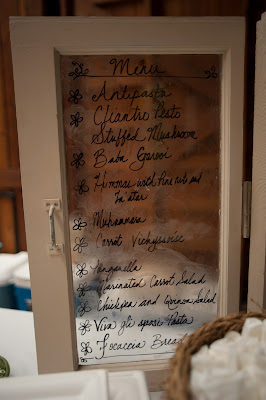 Menu
Antipasta
Cilantro Pesto
Stuffed Mushroom
Baba Ganoo
Hummus with Pine nuts and
Muhammara
Carrot Vichyssoise
Panzanella
Marinated Carrot Salad
Chickpea and Quinoa Salad
Viva gli sposi Pasta
Focaccia Bread